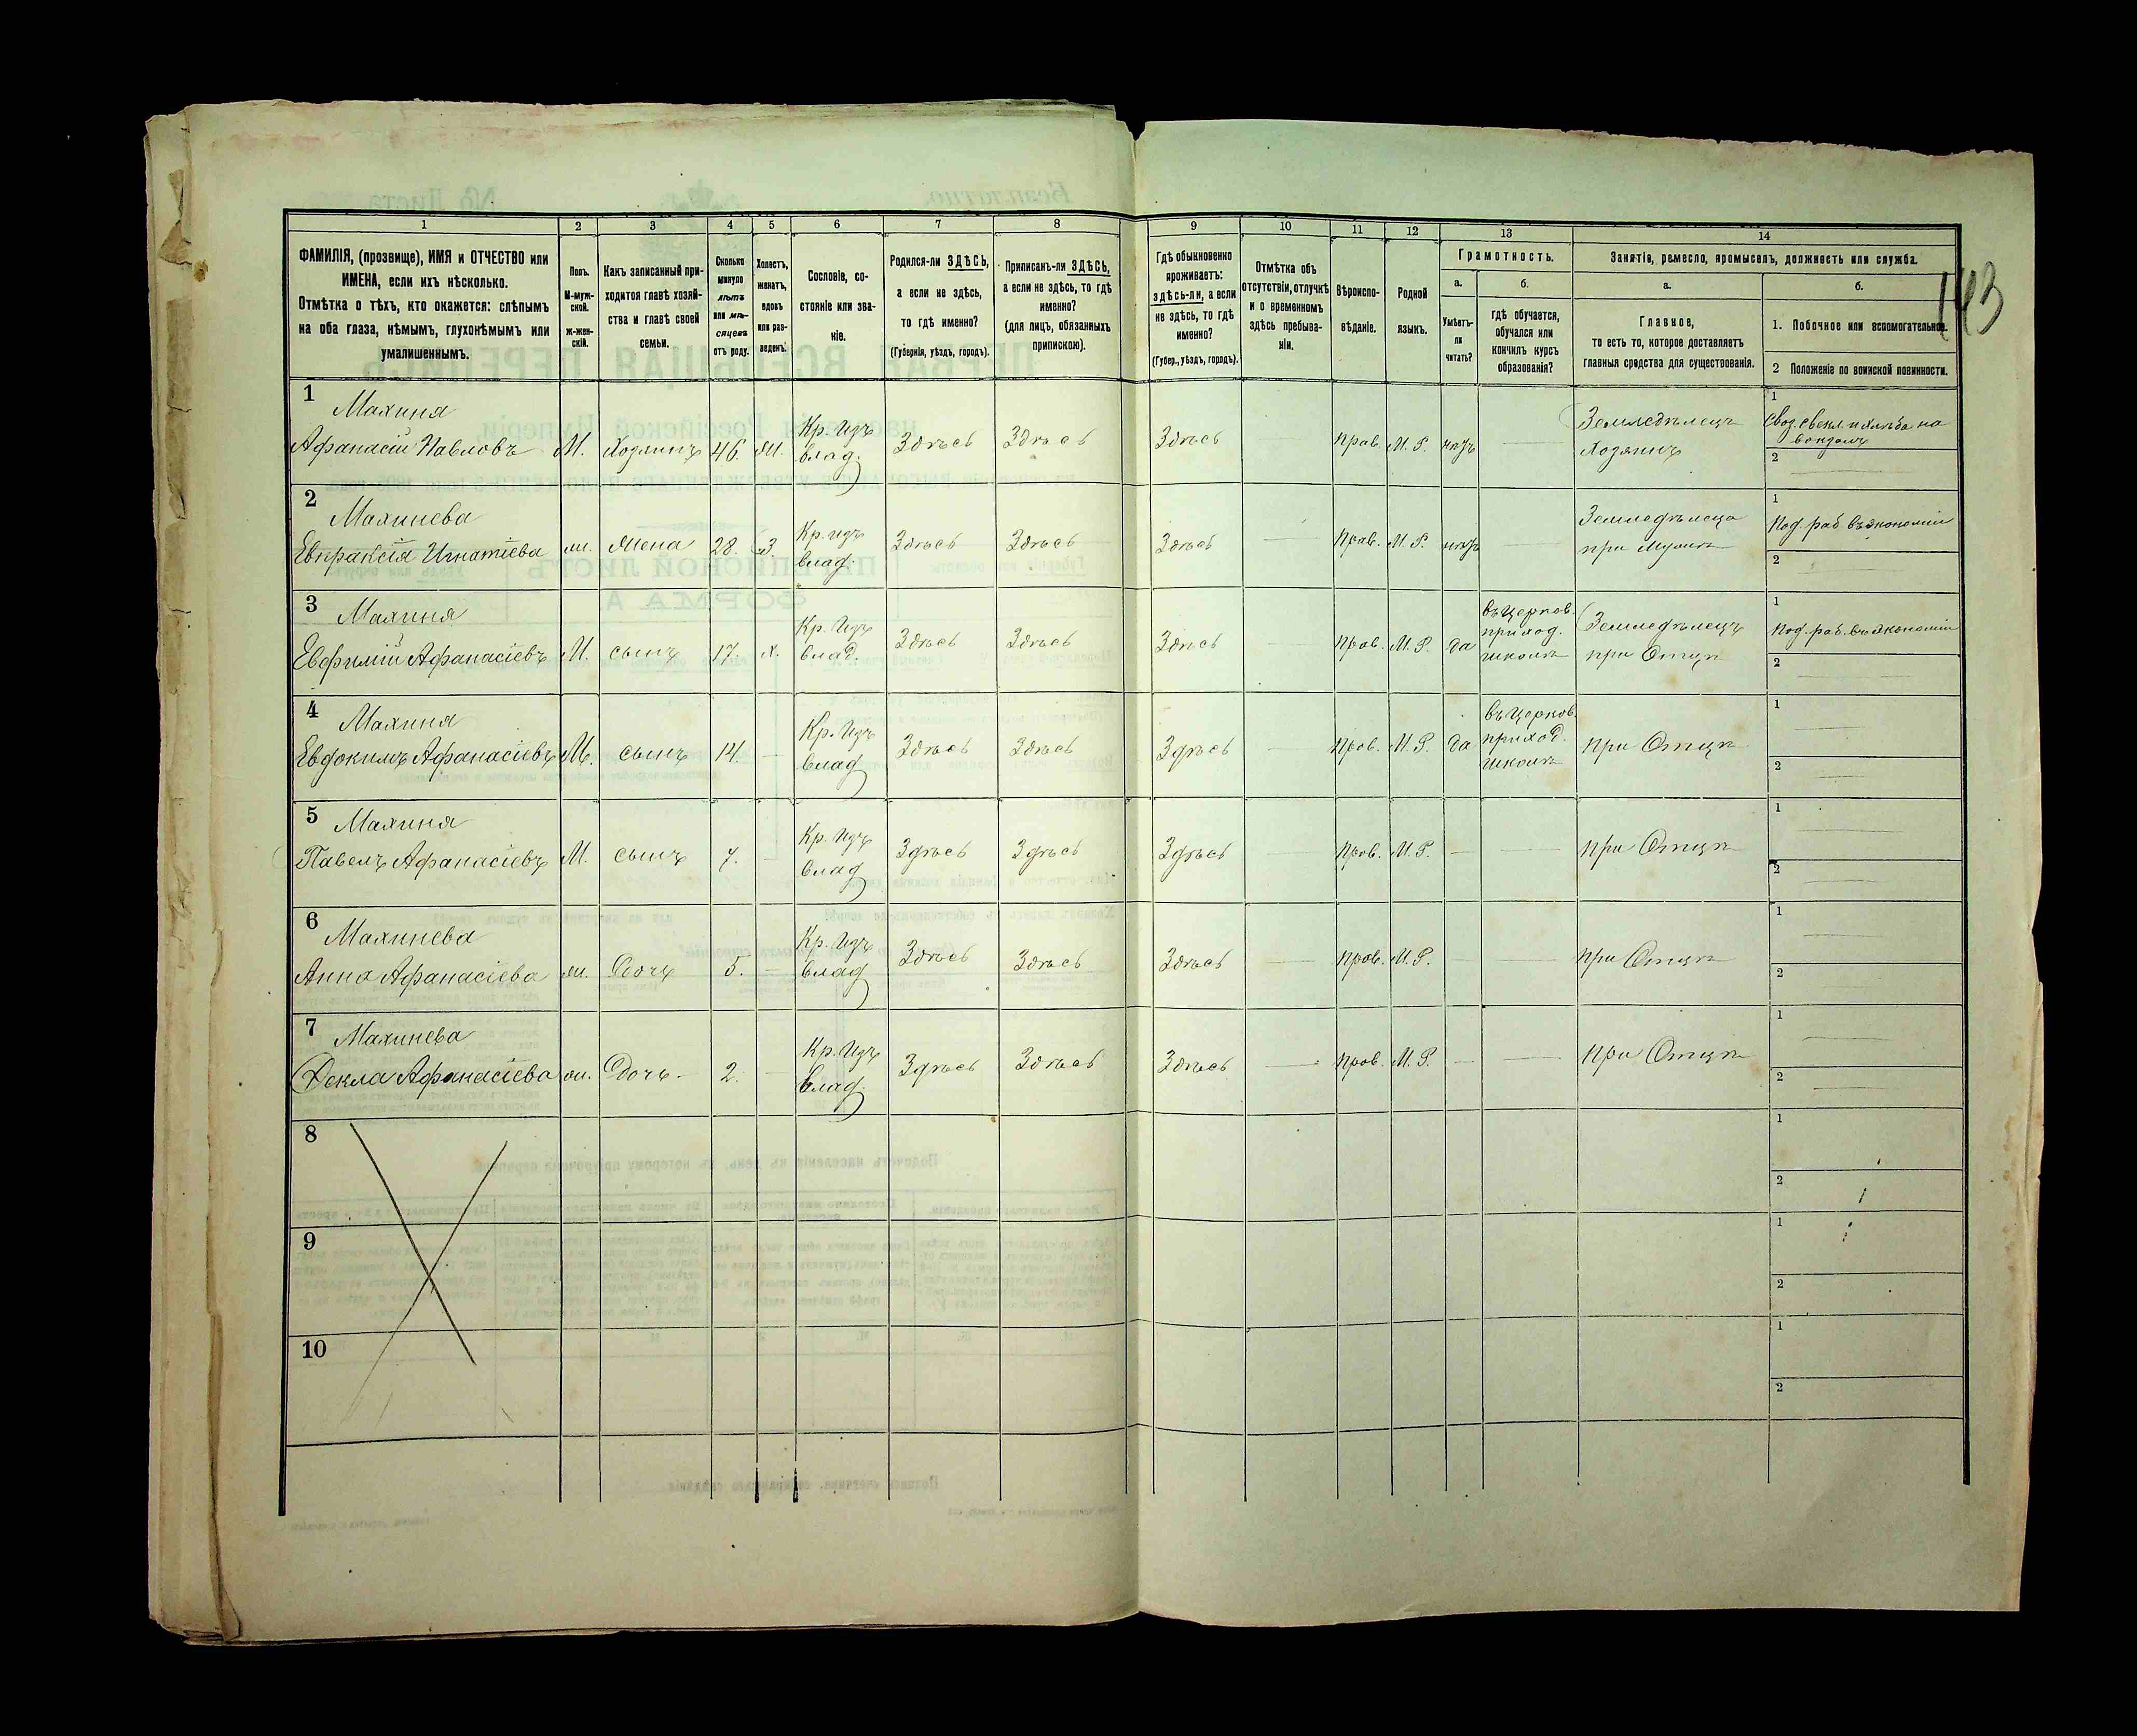 143
1 2 3 4 5 6 7 8 9 10 11 12 13 14
ФАМИЛІЯ, (прозвище), ИМЯ и ОТЧЕСТВО или
ИМЕНА, если ихъ нѣсколько.
Отмѣтка о тѣхъ, кто окажется: слѣпымъ
на оба глаза, нѣмымъ, глухонѣмымъ или
умалишеннымъ.
Полъ.
М-муж-
ской.
ж-жен-
скій.
Какъ записанный при-
ходится главѣ хозяй-
ства и главѣ своей
семьи.
Сколько
минуло
лѣтъ
или мѣ-
сяцевъ
отъ роду.
Холостъ,
женатъ,
вдовъ
или раз-
веденъ.
Сословіе, со-
стояніе или зва-
ніе.
Родился-ли ЗДѢСЬ,
а если не здѣсь,
то гдѣ именно?
(Губернія, уѣздъ, городъ).
Приписанъ-ли ЗДѢСЬ,
а если не здѣсь, то гдѣ
именно?
(для лицъ, обязанныхъ
припискою).
Гдѣ обыкновенно
проживаетъ:
здѣсь-ли, а если
не здѣсь, то гдѣ
именно?
(Губер., уѣздъ, городъ).
Отмѣтка объ
отсутствіи, отлучкѣ
и о временномъ
здѣсь пребыва-
ніи.
Вѣроиспо-
вѣданіе.
Родной
языкъ.
Грамотность.
а.
Умѣетъ-
ли
читать?
б.
гдѣ обучается,
обучался или
кончилъ курсъ
образованія?
Занятіе, ремесло, промыселъ, должность или служба.
а.
Главное,
то есть то, которое доставляетъ
главныя средства для существованія.
б.
1. Побочное или вспомогательное.
2 Положеніе по воинской повинности.
1
Махиня
Афанасій Павловъ М. Хозяинъ 46. Ж. Кр. изъ влад. Здѣсь Здѣсь Здѣсь — Прав. М. Р. нѣтъ — Земледѣлецъ
Хозяинъ
1 2
2
Махинева
Евпраксія Игнатіева ж. Жена 28. З. Кр. изъ влад. Здѣсь Здѣсь Здѣсь — Прав. М. Р. нѣтъ — Земледѣлица
при Мужѣ
1 Под. раб. въ экономіи
2 —
3
Махиня
Евфимій Афанасіевъ М. сынъ 17. х. Кр. изъ влад. Здѣсь Здѣсь Здѣсь — Прав. М. Р. да въ церков. приход. школѣ Земледѣлецъ
при Отцѣ
1 Под. раб. въ экономіи
2 —
4
Махиня
Евдокимъ Афанасіевъ М. сынъ 14. — Кр. изъ влад Здѣсь Здѣсь Здѣсь — Прав. М. Р. да въ церков. приход. школѣ при Отцѣ
1 —
2 —
5
Махиня
Павелъ Афанасіевъ М. сынъ 7. — Кр. изъ влад Здѣсь Здѣсь Здѣсь Прав. М. Р. — — при Отцѣ
1 —
2 —
6
Махинева
Анна Афанасіева ж. Дочь 5. — Кр. изъ влад Здѣсь Здѣсь Здѣсь — Прав. М. Р. — — при Отцѣ
1 —
2 —
7
Махинева
Фекла Афанасіева ж. Дочь 2. — Кр. изъ влад. Здѣсь Здѣсь Здѣсь — Прав. М. Р. — — при Отцѣ
1 —
2 —
8
1
2
9
1
2
10
1
2